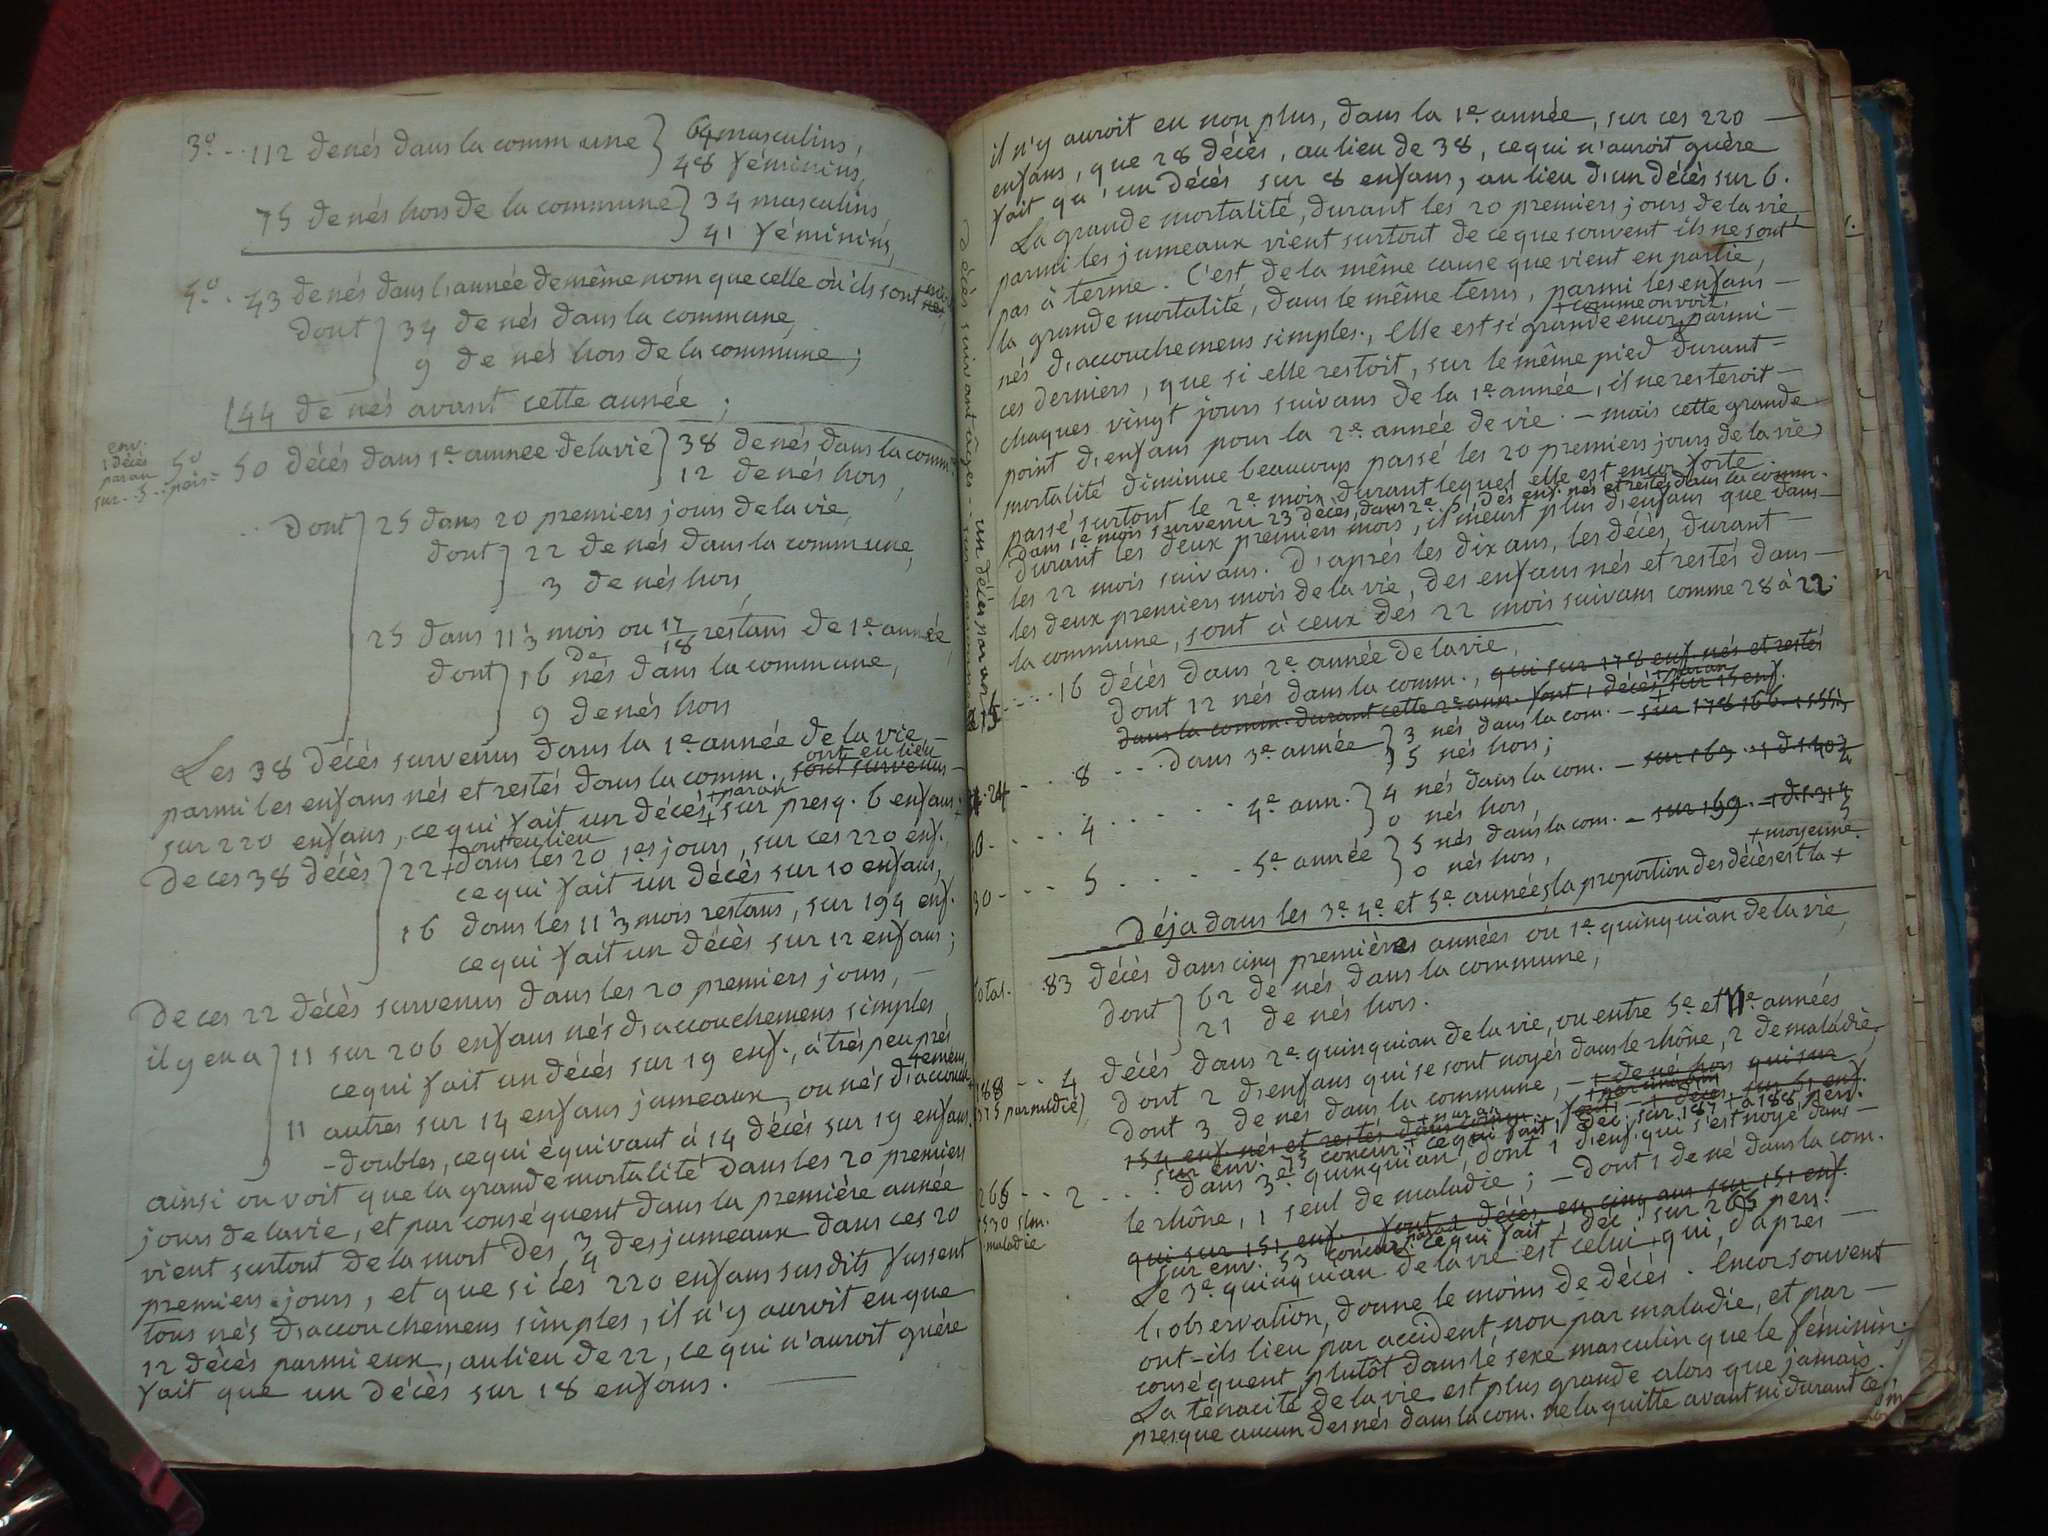 3.º -- 112 de nés dans la commune } 64 masculins,
48 féminins,
75 de nés hors de la commune } 34 masculins,
41 féminins,
4.º . 43 de nés dans l'année de même nom que celle où ils sont
dont } 34 de nés dans la commune,
9 de nés hors de la commune ;
144 de nés avant cette année ;
env.
1 décès
par an
sur .. 5 .. pers =
5.º 50 décès dans 1.e année de la vie } 38 de nés dans la comm.
12 de nés hors,
dont } 25 dans 20 premiers jours de la vie,
dont } 22 de nés dans la commune,
3 de nés hors,
25 dans 11 1/3 mois ou 17/18 restans de 1.e année,
dont } 16 de nés dans la commune,
9 de nés hors
Les 38 décès survenus dans la 1.e année de la vie
parmi les enfans nés et restés dans la comm., sont survenus ont eu lieu
sur 220 enfans, ce qui fait un décès + par an + sur presq. 6 enfans ;
De ces 38 décès } 22 + ont eu lieu + dans les 20 1.ers jours, sur ces 220 enf.
ce qui fait un décès sur 10 enfans,
16 dans les 11 1/3 mois restans, sur 194 enf.
ce qui fait un décès sur 12 enfans ;
De ces 22 décès survenus dans les 20 premiers jours, —
il y en a } 11 sur 206 enfans nés d'accouchemens simples
ce qui fait un décès sur 19 enf., à très peu près
11 autres sur 14 enfans jumeaux, ou nés d'accouchemens
- doubles, ce qui équivaut à 14 décès sur 19 enfans.
ainsi on voit que la grande mortalité dans les 20 premiers
jours de la vie, et par conséquent dans la première année
vient surtout de la mort des 3/4 des jumeaux dans ces 20
premiers jours, et que si les 220 enfans susdits fussent
tous nés d'accouchemens simples, il n'y auroit eu que
12 décès parmi eux, au lieu de 22, ce qui n'auroit guère
fait que un décès sur 18 enfans. —
Décès suivant âges -- un décès par an
il n'y auroit eu non plus, dans la 1.e année, sur ces 220 —
enfans, que 28 décès, au lieu de 38, ce qui n'auroit guère
fait qu'un décès sur 8 enfans, au lieu d'un décès sur 6.
La grande mortalité, durant les 20 premiers jours de la vie,
parmi les jumeaux vient surtout de ce que souvent ils ne sont
pas à terme. C'est de la même cause que vient en partie,
la grande mortalité, dans le même tems, parmi les enfans —
nés d'accouchemens simples., Elle est si grande encor, + comme on voit, parmi —
ces derniers, que si elle restoit, sur le même pied durant =
chaques vingt jours suivans de la 1.e année, il ne resteroit —
point d'enfans pour la 2.e année de vie. — mais cette grande
mortalité diminue beaucoup passé les 20 premiers jours de la vie,
passé surtout le 2.e mois, durant lequel elle est encor forte.
Dans 1.e mois survenu 23 décès, dans 2.e 5, des enf. nés et restés dans la comm.
Durant les deux premiers mois, il meurt plus d'enfans que dans —
les 22 mois suivans. D'après les dix ans, les décès, durant —
les deux premiers mois de la vie, des enfans nés et restés dans —
la commune, sont à ceux des 22 mois suivans comme 28 à 22.
16 décès dans 2.e année de la vie,
dont 12 nés dans la comm., qui sur 178 enf. nés et restés
dans la comm. durant cette 2.e ann. font 1 décès + par an + sur 15 enf.
8 -- dans 3.e année } 3 nés dans la com. — sur 178 166
5 nés hors ;
24 -- 4 -- 4.e ann. } 4 nés dans la com. — sur 163
0 nés hors,
5 -- 5.e année } 5 nés dans la com. — sur 159
0 nés hors,
Déja dans les 3.e 4.e et 5.e années, la proportion des décès est la + moyenne.
total. 83 décès dans cinq premières années ou 1.e quinquian de la vie,
dont } 62 de nés dans la commune,
21 de nés hors.
188 -- 4 décès dans 2.e quinquian de la vie, ou entre 5.e et 11.e années
375 par maladie)
dont 2 d'enfans qui se sont noyés dans le rhône, 2 de maladie,
dont 3 de nés dans la commune, — 1 de né hors qui sur
154 enf. nés et restés dans comm. font 1 décès sur 51 enf.
sur env. 75 concur. + ce qui fait 1 déc. sur 187 + à 188 pers.
265 -- 2 -- dans 3.e quinquian, dont 1 d'enf. qui s'est noyé dans —
530 s. m.
maladie
le rhône, 1 seul de maladie ; — dont 1 de né dans la com.
qui sur 151 enf. font 1 décès en cinq ans sur 151 enf.
sur env. 53 concur. ce qui fait 1 déc. sur 265 pers.
Le 3.e quinquian de la vie est celui, qui, d'après —
l'observation, donne le moins de décès. Encor souvent
ont-ils lieu par accident, non par maladie, et par —
conséquent plutôt dans le sexe masculin que le féminin.
La ténacité de la vie est plus grande alors que jamais.
presque aucun des nés dans la com. ne la quitte avant ni durant ce